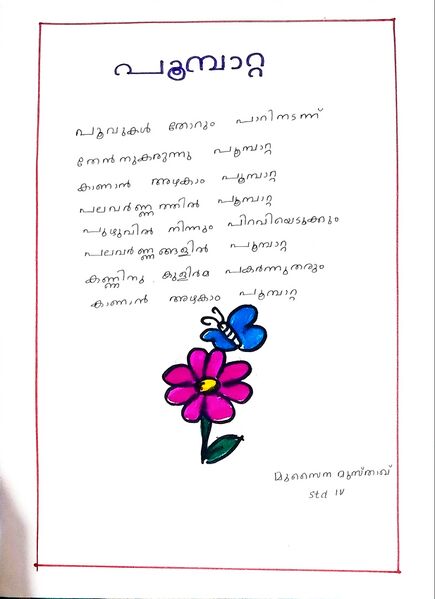 പൂമ്പാറ്റ
പൂവുകൾ തോറും പാറിനടന്ന്
തേൻ നുകരുന്നു പൂമ്പാറ്റ
കാണാൻ അഴകാം പൂമ്പാറ്റ
പലവർണ്ണത്തിൽ പൂമ്പാറ്റ
പുഴുവിൽ നിന്നും പിറവിയെടുക്കും
പലവർണ്ണങ്ങളിൽ പൂമ്പാറ്റ
കണ്ണിനു കുളിർമ പകർന്നുതരും
കാണാൻ അഴകാം പൂമ്പാറ്റ
മുസൈന മുസ്താഖ്
std IV